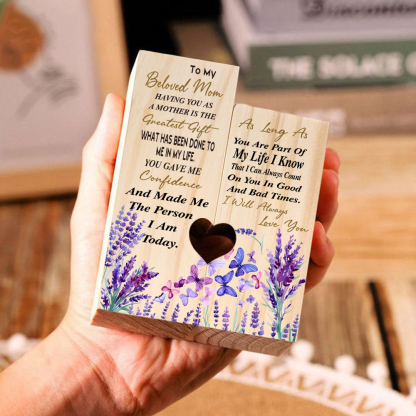 To My
Beloved Mom
HAVING YOU AS
A MOTHER IS THE
Greatest Gift
WHAT HAS BEEN DONE TO
ME IN MY LIFE
YOU GAVE ME
Confidence
And Made Me
The Person
I Am
Today.
As Long As
You Are Part Of
My Life I Know
That I Can Always Count
On You In Good
And Bad Times.
I Will Always
Love You
THE SOLACE OF